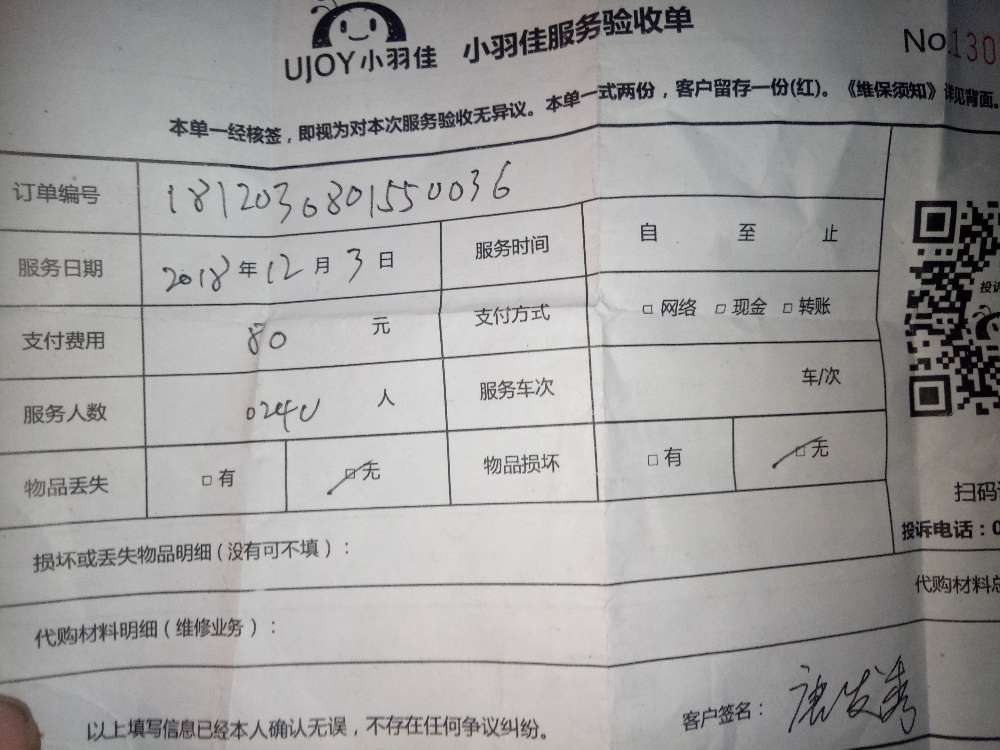 UJOY小羽佳 小羽佳服务验收单 No.130
本单一经核签，即视为对本次服务验收无异议。本单一式两份，客户留存一份(红)。《维保须知》详见背面。
订单编号 1812030801550036
服务日期 2018年12月3日 服务时间 自 至 止
支付费用 80 元 支付方式 □网络 □现金 □转账
服务人数 024U 人 服务车次 车/次
物品丢失 □有 □无 物品损坏 □有 □无
投诉
扫码
投诉电话：0
损坏或丢失物品明细(没有可不填)：
代购材料总
代购材料明细(维修业务)：
以上填写信息已经本人确认无误，不存在任何争议纠纷。
客户签名：唐发秀